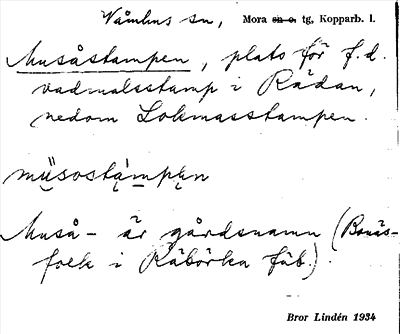 Våmhus sn, Mora sn o. tg, Kopparb. l.
Musåstampen, plats för f.d.
vadmalsstamp i Rådan,
nedom Lokmasstampen.
müsostampen
Muså- är gårdsnamn (Bonäs-
folk i Råbörka fäb).
Bror Lindén 1934